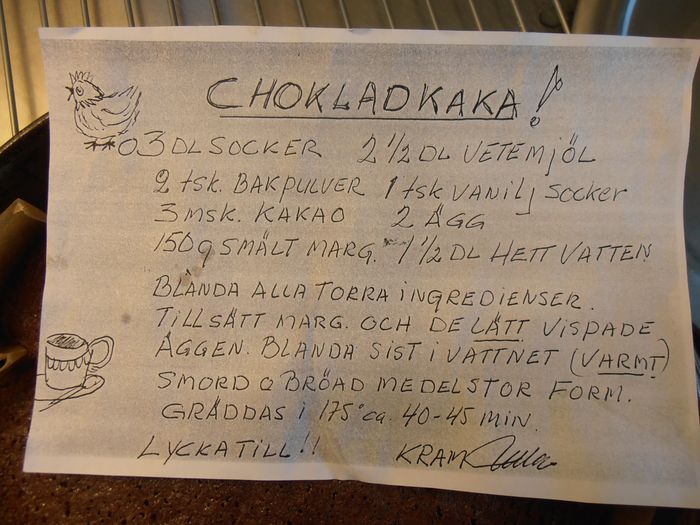 CHOKLADKAKA!
3 DL SOCKER 2 1/2 DL VETEMJÖL
2 tsk. BAKPULVER 1 tsk VANILJ SOCKER
3 msk. KAKAO 2 ÄGG
150g SMÄLT MARG. 1 1/2 DL HETT VATTEN
BLANDA ALLA TORRA INGREDIENSER.
TILLSÄTT MARG. OCH DE LÄTT VISPADE
ÄGGEN. BLANDA SIST I VATTNET (VARMT)
SMORD o BRÖAD MEDELSTOR FORM.
GRÄDDAS i 175° ca. 40-45 MIN.
LYCKA TILL!! KRAM